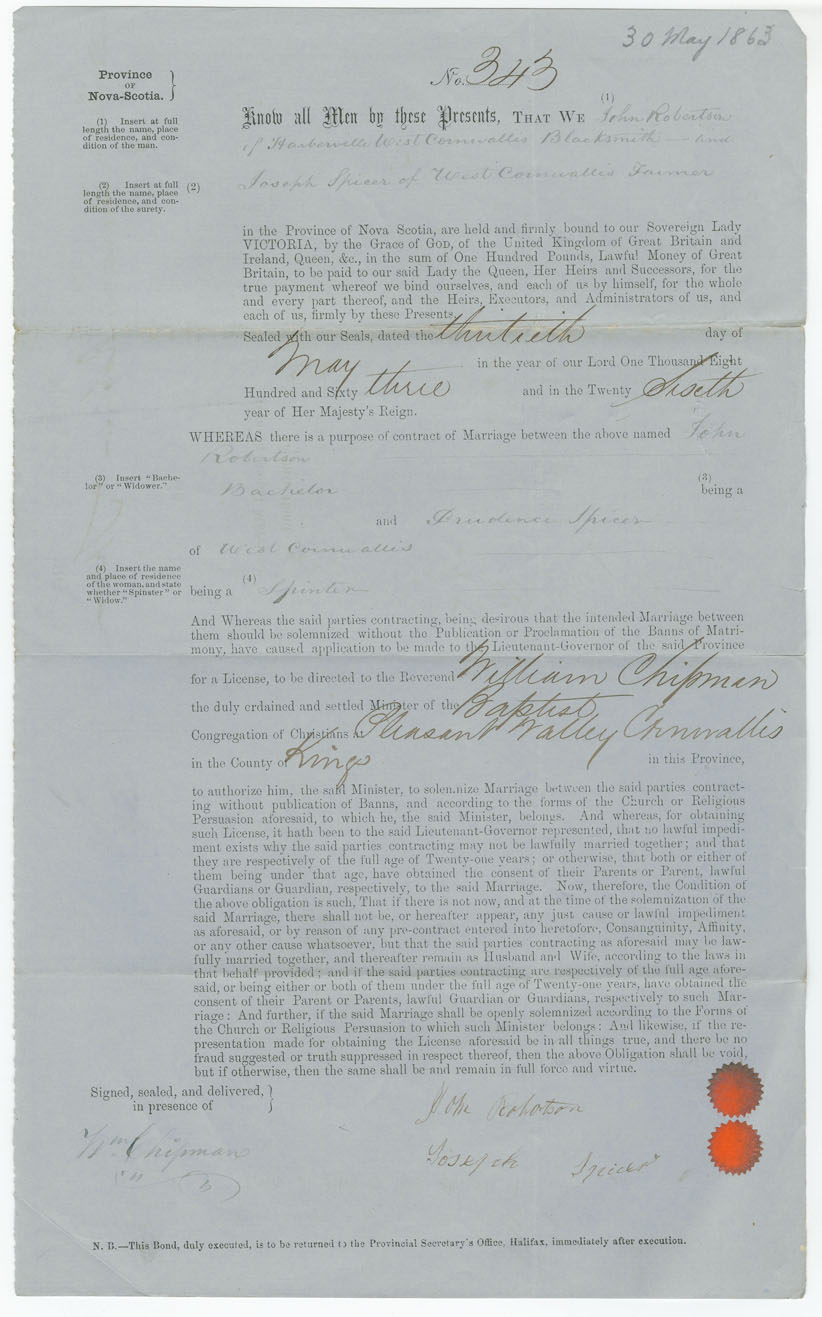 30 May 1863
No. 343
Province
OF
Nova-Scotia.
(1) Insert at full
length the name, place
of residence, and con-
dition of the man.
(2) Insert at full
length the name, place
of residence, and con-
dition of the surety.
(1)
Know all Men by these Presents, THAT WE John Robertson
of Harborville West Cornwallis Blacksmith — and
(2) Joseph Spicer of West Cornwallis Farmer
in the Province of Nova Scotia, are held and firmly bound to our Sovereign Lady
VICTORIA, by the Grace of GOD, of the United Kingdom of Great Britain and
Ireland, Queen, &c., in the sum of One Hundred Pounds, Lawful Money of Great
Britain, to be paid to our said Lady the Queen, Her Heirs and Successors, for the
true payment whereof we bind ourselves, and each of us by himself, for the whole
and every part thereof, and the Heirs, Executors, and Administrators of us, and
each of us, firmly by these Presents.
Sealed with our Seals, dated the thirtieth day of
May in the year of our Lord One Thousand Eight
Hundred and Sixty three and in the Twenty Sixth
year of Her Majesty's Reign.
WHEREAS there is a purpose of contract of Marriage between the above named John
Robertson
(3) Insert "Bache-
lor" or "Widower."
(3)
Bachelor being a
and Prudence Spicer
of West Cornwallis
(4) Insert the name
and place of residence
of the woman, and state
whether "Spinster" or
"Widow."
(4)
being a Spinter
And Whereas the said parties contracting, being desirous that the intended Marriage between
them should be solemnized without the Publication or Proclamation of the Banns of Matri-
mony, have caused application to be made to the Lieutenant-Governor of the said Province
for a License, to be directed to the Reverend William Chipman
the duly ordained and settled Minister of the Baptist
Congregation of Christians at Pleasant Valley Cornwallis
in the County of Kings in this Province,
to authorize him, the said Minister, to solemnize Marriage between the said parties contract-
ing without publication of Banns, and according to the forms of the Church or Religious
Persuasion aforesaid, to which he, the said Minister, belongs. And whereas, for obtaining
such License, it hath been to the said Lieutenant-Governor represented, that no lawful impedi-
ment exists why the said parties contracting may not be lawfully married together; and that
they are respectively of the full age of Twenty-one years; or otherwise, that both or either of
them being under that age, have obtained the consent of their Parents or Parent, lawful
Guardians or Guardian, respectively, to the said Marriage. Now, therefore, the Condition of
the above obligation is such, That if there is not now, and at the time of the solemnization of the
said Marriage, there shall not be, or hereafter appear, any just cause or lawful impediment
as aforesaid, or by reason of any pre-contract entered into heretofore, Consanguinity, Affinity,
or any other cause whatsoever, but that the said parties contracting as aforesaid may be law-
fully married together, and thereafter remain as Husband and Wife, according to the laws in
that behalf provided; and if the said parties contracting are respectively of the full age afore-
said, or being either or both of them under the full age of Twenty-one years, have obtained the
consent of their Parent or Parents, lawful Guardian or Guardians, respectively to such Mar-
riage: And further, if the said Marriage shall be openly solemnized according to the Forms of
the Church or Religious Persuasion to which such Minister belongs: And likewise, if the re-
presentation made for obtaining the License aforesaid be in all things true, and there be no
fraud suggested or truth suppressed in respect thereof, then the above Obligation shall be void,
but if otherwise, then the same shall be and remain in full force and virtue.
Signed, sealed, and delivered,
in presence of
John Robertson
Wm Chipman
Joseph Spicer
N. B.—This Bond, duly executed, is to be returned to the Provincial Secretary's Office, Halifax, immediately after execution.